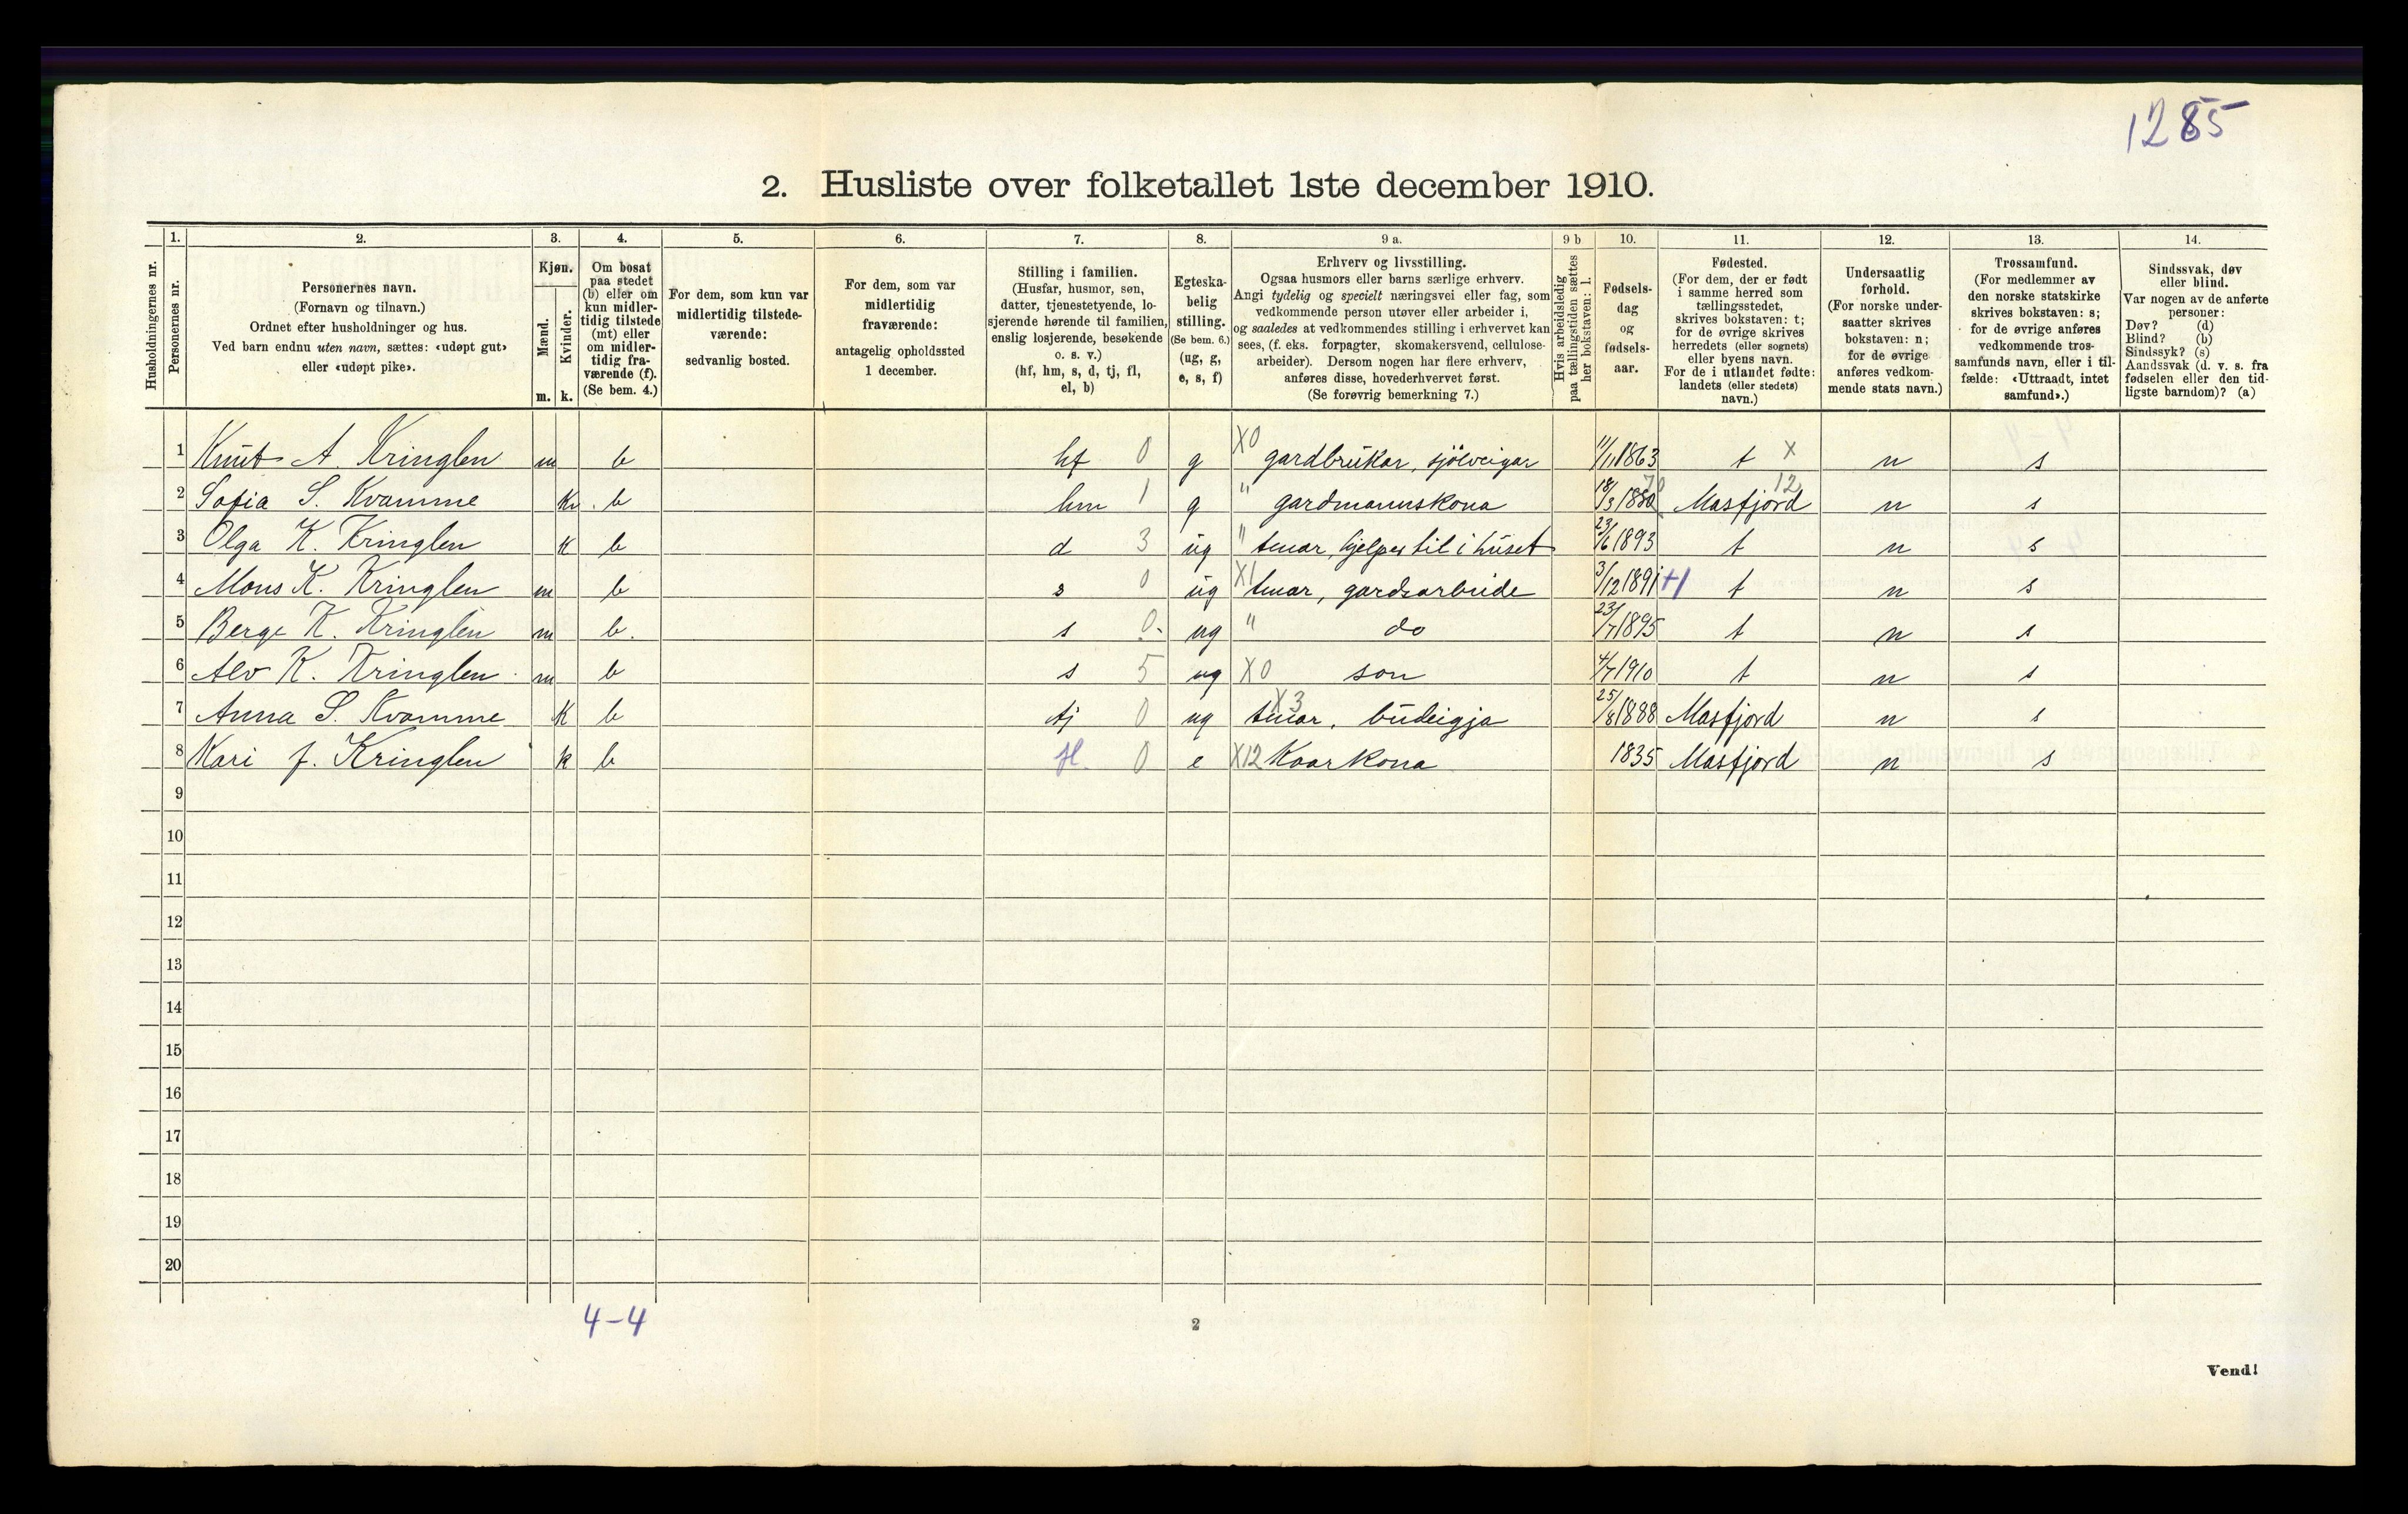 1285
2. Husliste over folketallet 1ste december 1910.
Husholdningernes nr.
1. Personernes nr.
2. Personernes navn.
(Fornavn og tilnavn.)
Ordnet efter husholdninger og hus.
Ved barn endnu uten navn, sættes: «udøpt gut»
eller «udøpt pike».
3. Kjøn.
Mænd. Kvinder.
m. k.
4. Om bosat
paa stedet
(b) eller om
kun midler-
tidig tilstede
(mt) eller
om midler-
tidig fra-
værende (f).
(Se bem. 4.)
5. For dem, som kun var
midlertidig tilstede-
værende:
sedvanlig bosted.
6. For dem, som var
midlertidig
fraværende:
antagelig opholdssted
1 december.
7. Stilling i familien.
(Husfar, husmor, søn,
datter, tjenestetyende, lo-
sjerende hørende til familien,
enslig losjerende, besøkende
o. s. v.)
(hf, hm, s, d, tj, fl,
el, b)
8. Egteska-
belig
stilling.
(Se bem. 6.)
(ug, g,
e, s, f)
9 a. Erhverv og livsstilling.
Ogsaa husmors eller barns særlige erhverv.
Angi tydelig og specielt næringsvei eller fag, som
vedkommende person utøver eller arbeider i,
og saaledes at vedkommendes stilling i erhvervet kan
sees, (f. eks. forpagter, skomakersvend, cellulose-
arbeider). Dersom nogen har flere erhverv,
anføres disse, hovederhvervet først.
(Se forøvrig bemerkning 7.)
9 b Hvis arbeidsledig
paa tællingstiden sættes
her bokstaven: l.
10. Fødsels-
dag
og
fødsels-
aar.
11. Fødested.
(For dem, der er født
i samme herred som
tællingsstedet,
skrives bokstaven: t;
for de øvrige skrives
herredets (eller sognets)
eller byens navn.
For de i utlandet fødte:
landets (eller stedets)
navn.)
12. Undersaatlig
forhold.
(For norske under-
saatter skrives
bokstaven: n;
for de øvrige
anføres vedkom-
mende stats navn.)
13. Trossamfund.
(For medlemmer av
den norske statskirke
skrives bokstaven: s;
for de øvrige anføres
vedkommende tros-
samfunds navn, eller i til-
fælde: «Uttraadt, intet
samfund».)
14. Sindssvak, døv
eller blind.
Var nogen av de anførte
personer:
Døv? (d)
Blind? (b)
Sindssyk? (s)
Aandssvak (d. v. s. fra
fødselen eller den tid-
ligste barndom)? (a)
1 Knut A. Kringlen m b hf 0 g X0 gardbrukar, sjölveigar 11/11 1863 t X n s
2 Sofia S. Kvamme k b hm 1 g " gardmannskona 18/3 1880 70 Masfjord 12 n s
3 Olga K. Kringlen K b d 3 ug " tenar, hjelper til i huset 23/6 1893 t n s
4 Mons K. Kringlen m b s 0 ug X1 tenar, gardsarbeide 3/12 1891 +1 t n s
5 Berge K. Kringlen m b. s 0. ug " do 23/7 1895 t n s
6 Alv K. Kringlen m b s 5 ug X0 son 4/7 1910 t n s
7 Anna S. Kvamme K b tj 0 ug X3 tenar, budeigja 25/8 1888 Masfjord n s
8 Kari J. Kringlen k b fl. 0 e X12 Kaarkona 1835 Masfjord n s
9
10
11
12
13
14
15
16
17
18
19
20
4-4
2
Vend!